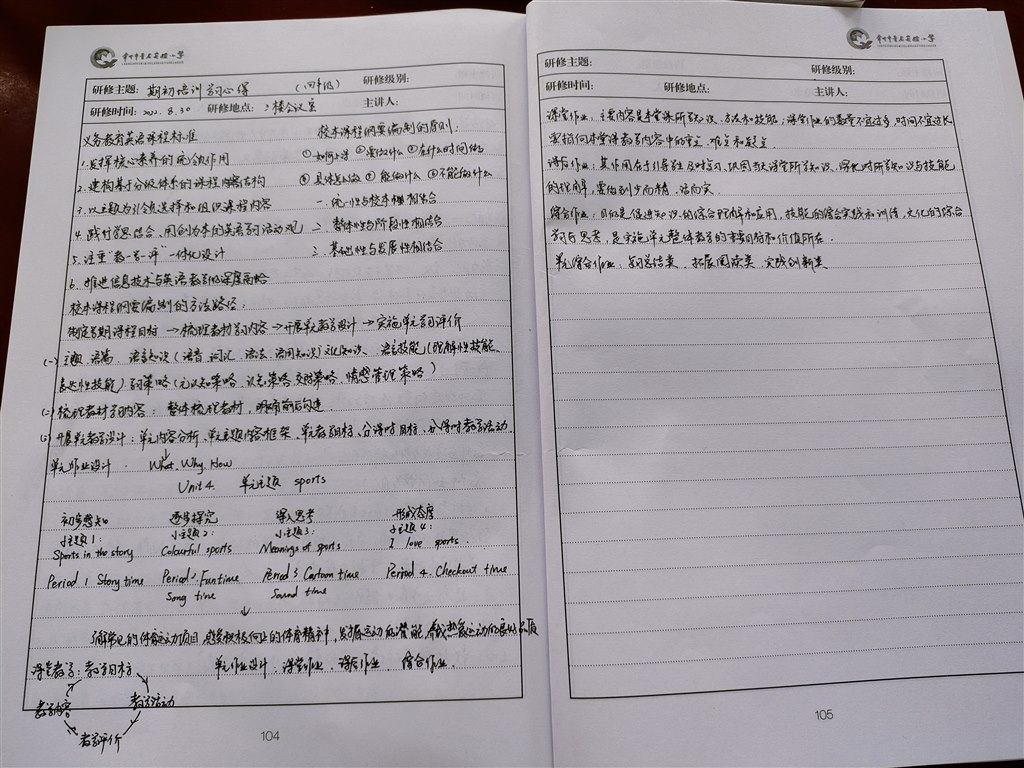 研修主题：期初培训学习心得 （四年级） 研修级别：
研修时间：2022.8.30 研修地点：二楼会议室 主讲人：
义务教育英语课程标准 校本课程纲要编制的原则：
1.发挥核心素养的统领作用 ①如何上学 ②要做什么 ③在什么时间做
2.建构基于分级体系的课程内容结构 ④具体怎么做 ⑤能做什么 ⑥不能做什么
3.以主题为引领选择和组织课程内容 一、统一性与校本相结合
4.践行学思结合、用创为本的英语学习活动观 二、整体性与阶段性相结合
5.注重"教-学-评"一体化设计 三、基础性与发展性相结合
6.推进信息技术与英语教学的深度融合
校本课程纲要编制的方法路径：
制定学期课程目标→梳理教材学习内容→开展单元教学设计→实施单元学习评价
(一)主题、语篇、语言知识（语音、词汇、语法、语用知识）文化知识、语言技能（理解性技能、
表达性技能）学习策略（元认知策略、认知策略、交际策略、情感管理策略）
(二)梳理教材学习内容：整体梳理教材，明晰前后沟连.
(三)开展单元教学设计：单元内容分析、单元主题内容框架、单元教学目标、分课时目标、分课时教学活动.
单元作业设计. What. Why. How
Unit 4 单元主题 sports
初步感知 逐步探究 深入思考 形成态度
小主题1： 小主题2： 小主题3： 小主题4：
Sports in the story Colourful sports Meanings of sports I love sports.
Period 1 Story time Period 2 Fun time Period 3 Cartoon time Period 4. Checkout time
Song time Sound time
了解常见的体育运动项目，感受积极向上的体育精神，发掘运动的潜能，养成热爱运动的良好品质
课堂教学：教学目标 单元作业设计：课堂作业、课后作业、综合作业.
教学内容 教学活动
教学评价
104
研修主题： 研修级别：
研修时间： 研修地点： 主讲人：
课堂作业，主要内容是本堂课所学知识、方法和技能；课堂作业的数量不宜过多，时间不宜过长
要指向本堂课教学内容中的重点、难点和疑点.
课后作业：其作用在于引导学生及时复习、巩固当天课堂所学知识，深化对所学知识与技能
的理解，要做到少而精、活而实.
综合作业：目的是促进知识的综合理解和应用，技能的综合实践和训练，文化的综合
学习与思考，是实施单元整体教学的重要目标和价值所在.
单元综合作业：复习总结类、拓展阅读类、实践创新类
105